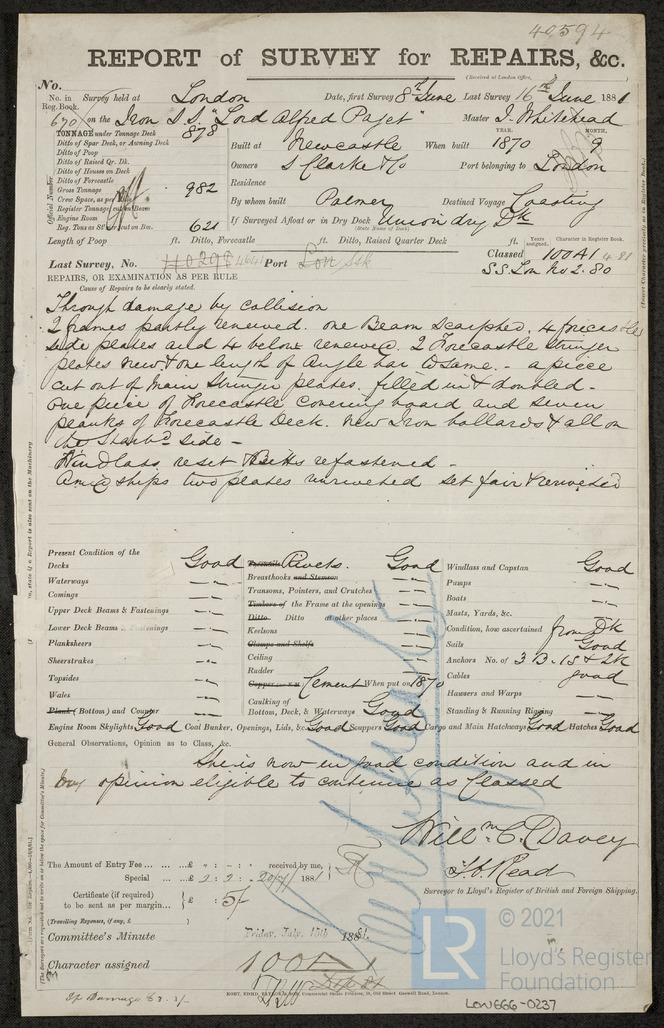 40594
REPORT of SURVEY for REPAIRS, &c.
(Received at London Office,
No.
No. in Survey held at London Date, first Survey 8th June Last Survey 16th June 1881
Reg. Book.
670 on the Iron S.S. "Lord Alfred Paget" Master J. Whitehead
TONNAGE under Tonnage Deck 878
Ditto of Spar Deck, or Awning Deck
Ditto of Poop
Ditto of Raised Qr. Dk.
Ditto of Houses on Deck
Ditto of Forecastle
Gross Tonnage 982
Crew Space, as per
Register Tonnage, cut on Beam
Engine Room
Reg. Tons as cut on Bm. 621
Official Number
YEAR. MONTH.
Built at Newcastle When built 1870 9
Owners S Clarke & Co Port belonging to London
Residence
By whom built Palmer Destined Voyage Coasting
If Surveyed Afloat or in Dry Dock Union dry Dk
(State Name of Dock)
Length of Poop ft. Ditto, Forecastle ft. Ditto, Raised Quarter Deck ft.
Years assigned. Character in Register Book.
Classed 100A1 4.81
S.S. Lon No 2.80
Last Survey, No. Port Lon
REPAIRS, OR EXAMINATION AS PER RULE
Cause of Repairs to be clearly stated.
Through damage by collision
2 frames partly renewed. one Beam scarphed. 4 forecastle
side plates and 4 below renewed. 2 Forecastle stringer
plates new & one length of angle bar to same. - a piece
cut out of Main Stringer plates. filled in & doubled -
one piece of Forecastle covering board and seven
planks of Forecastle Deck. new Iron bollards & all on
the Starbd side -
Windlass reset & Bitts refastened -
Amidships two plates unriveted set fair & reriveted
Present Condition of the
Decks Good
Waterways
Comings
Upper Deck Beams & Fastenings
Lower Deck Beams & Fastenings
Planksheers
Sheerstrakes
Topsides
Wales
Plank (Bottom) and Counter
Treenails Rivets. Good
Breasthooks and Stemson
Transoms, Pointers, and Crutches
Timbers of the Frame at the openings
Ditto Ditto at other places
Keelsons
Clamps and Shelfs
Ceiling
Rudder
Cement When put on 1870
Caulking of
Bottom, Deck, & Waterways Good
Windlass and Capstan Good
Pumps
Boats
Masts, Yards, &c.
Condition, how ascertained from Dk
Sails Good
Anchors No. of 3 B. 1 S & 2 K
Cables good
Hawsers and Warps
Standing & Running Rigging
Engine Room Skylights Good Coal Bunker, Openings, Lids, &c. Good Scuppers Good Cargo and Main Hatchways Good Hatches Good
General Observations, Opinion as to Class, &c.
She is now in good condition and in
my opinion eligible to continue as Classed
Willm C. Davey
Surveyor to Lloyd's Register of British and Foreign Shipping.
The Amount of Entry Fee ... ... ...£ " : - : - received by me,
Special ... ...£ 2 : 2 : - 20/7/ 1881
Certificate (if required)
to be sent as per margin... £ : 5/-
(Travelling Expenses, if any, £ )
Committee's Minute Friday, July 15th 1881.
Character assigned 100A1
LR
© 2021
Lloyd's Register
Foundation
LON666-0237